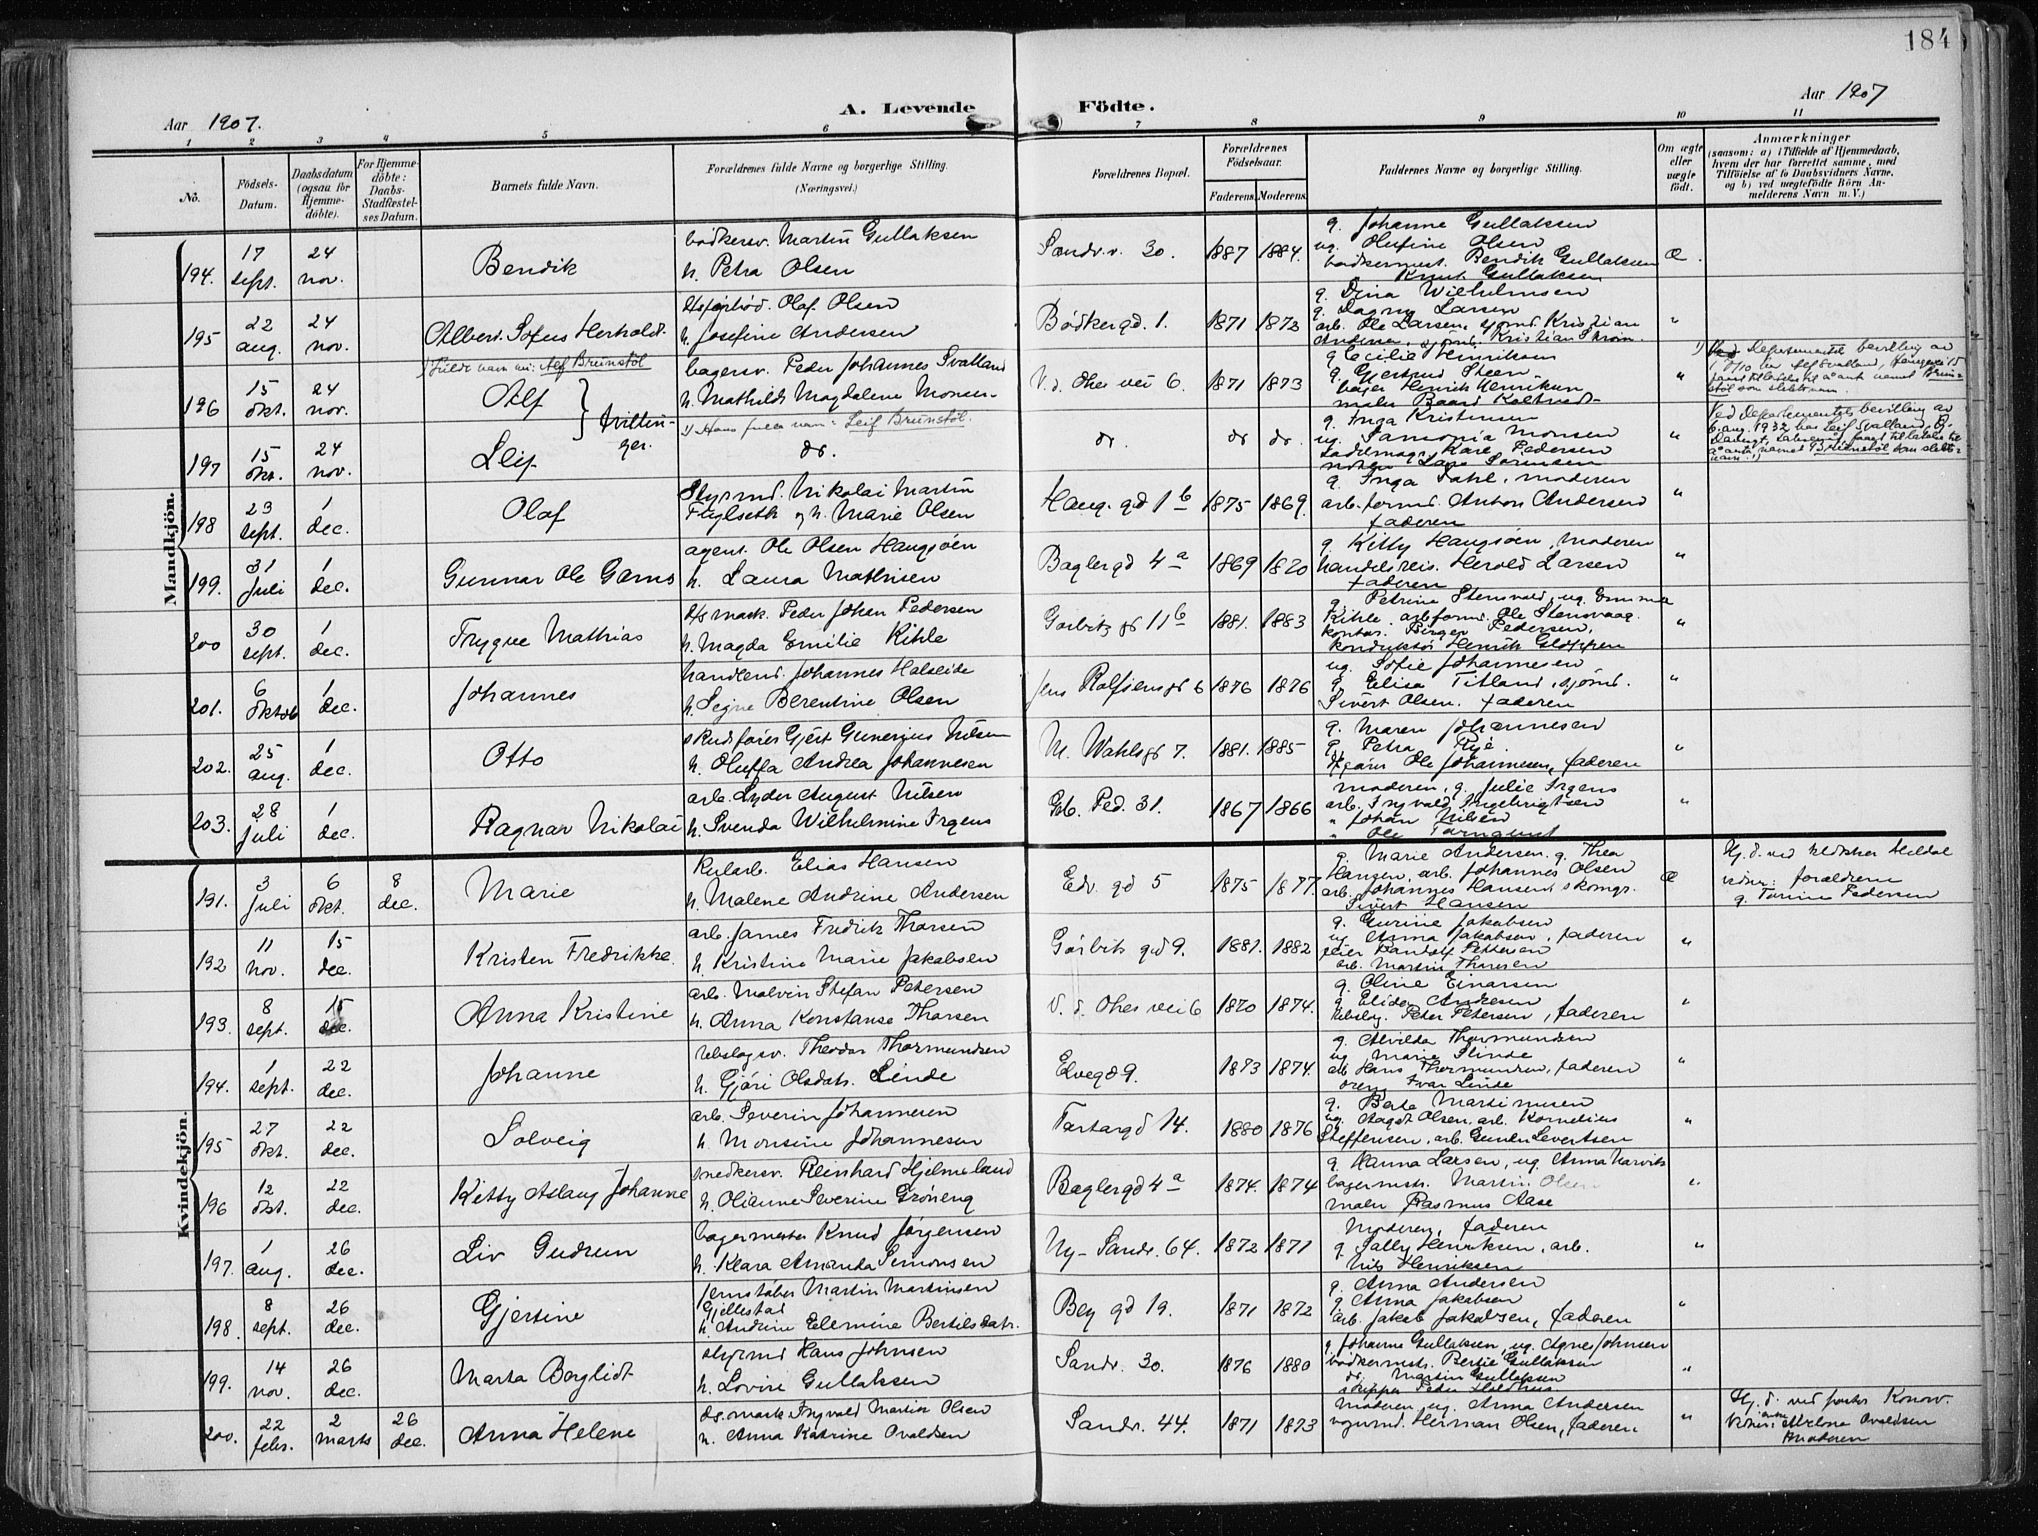 184
Aar 1907.
A. Levende Födte.
Aar 1907
1 2 3 4 5 6 7 8 9 10 11
No.
Födsels-Datum.
Daabsdatum (ogsaa for Hjemmedöbte).
For Hjemmedöbte: Daabs-Stadfæstelses Datum.
Barnets fulde Navn.
Forældrenes fulde Navne og borgerlige Stilling. (Næringsvei.)
Forældrenes Bopæl.
Forældrenes Födselsaar.
Faderens. Moderens.
Faddernes Navne og borgerlige Stilling.
Om ægte eller uægte födt.
Anmærkninger
(saasom: a) i Tilfælde af Hjemmedaab, hvem der har forrettet samme, med Tilföielse af to Daabsvidners Navne, og b) ved uægtefödte Börn Anmelderens Navn m. V.)
Mandkjön.
194. 17 sept. 24 nov. Bendik
bødkersv. Martin Gullaksen
h. Petra Olsen
Sandv. v. 30. 1887 1884.
g. Johanne Gullaksen
ug. Olufine Olsen
bødkermest. Bendik Gullaksen
Knut Gullaksen
Æ.
195 22 aug. 24 nov. Albert Sofus Herholdt.
Olaf Olsen
h. Josefine Andersen
Bødkergd. 1. 1871 1872
g. Dina Wilhelmsen
g. Dagny Larsen
arb. Ole Larsen, sjømd. Kristian
"
1) Fulde navn er: Alf Brunstøl
196 15 okt. 24 nov. Alf
bagersv. Peder Johannes Svalland
h. Mathilde Magdalene Monsen
V. d. Ohes vei 6. 1871 1873
g. Cecilie Henriksen
g. Gjertrud Steen
bager Henrik Henriksen
maler Baard Koltvedt
"
tvillinger.
1) Hans fulle navn: Leif Brunstøl.
197 15 okt. 24 nov. Leif
do.
do. do do.
g. Inga Kristensen
ug. Samonia Monsen
Kare Pedersen
Lars Sørensen
"
Ved Departementets bevilling av 6. aug. 1932 har Leif Svalland
198 23 sept. 1 dec. Olaf
Styrmd. Nikolai Martin
Fuglseth og h. Marie Olsen
Haug. gd 1 b 1875 1869.
g. Inga Dahl, moderen
arb. formd. Anton Andersen
faderen
"
199. 31 Juli 1 dec. Gunnar Ole Garns
agent. Ole Olsen Haugsøen
h. Laura Mathisen
Baglergd 4 a 1869 1870
g. Kitty Haugsøen, moderen
handelsreis. Herold Larsen
faderen
"
200 30 sept. 1 dec. Trygve Mathias
Peder Johan Pedersen
h. Magda Emilie Kihle
Gørbitzgd 11 b 1881. 1883
g. Petrine Stensvold, ug. Emma
Kihle, arbformd. Ole Stensvaag.
kontor. Birger Pedersen,
konduktør Henrik Gloppen
"
201. 6 oktob 1 dec. Johannes
handlend. Johannes Halseide
h. Signe Berentine Olsen
Jens Rolfsensgd 6 1876 1876
ug. Sofie Johannesen
g. Elisa Titland, sjømd.
Sivert Olsen. faderen
"
202. 25 aug. 1 dec. Otto
skudfører Gjert Gunerius Nilsen
h. Oluffa Andrea Johannesen
M. Wahlsgd 7. 1881. 1885
g. Maren Johannesen
g. Petra Rye.
Ole Johannesen, faderen
"
203. 28 Juli 1 dec. Ragnar Nikolai
arb. Lyder August Nilsen
h. Svenda Wilhelmine Irgens
Gb. Ped. 31. 1867 1866
moderen, g. Julie Irgens
arb. Ingvald Ingebrigtsen
" Johan Nilsen
" Ole Tornquist
"
Kvindekjön.
191. 3 Juli 6 okt. 8 dec. Marie
Kularb. Elias Hansen
h. Malene Andrine Andersen
Edv. gd 5 1875 1877.
g. Marie Andersen. g. Thea
Hansen, arb. Johannes Olsen
arb. Johannes Hansen, skomgr.
Sivert Hansen
Æ
Hj. d. ved Hildal
vidner: forældrene
g. Tomine Pedersen
192 11 nov. 15 dec. Kristen Fredrikke
arb. James Fredrik Thorsen
h. Kristine Marie Jakobsen
Gørbitz gd 9. 1881. 1882
g. Gurine Jakobsen
ug. Anna Jakobsen, faderen
Randolf Pettersen
arb. Martin Thoresen
"
193. 8 sept. 15 dec. Anna Kristine
arb. Malvin Stefan Petersen
h. Anna Konstanse Thorsen
V. d. Ohes vei 6 1870 1874.
g. Oline Einarsen
g. Elida Andresen
Peter Petersen, faderen
"
194. 1 sept. 22 dec. Johanne
Theodor Thormundsen
h. Gjøri Olsdatr. Linde
Elvegd 9. 1873 1874.
g. Alvilda Thormundsen
ug. Marie Slinde
arb Hans Thormundsen, faderen
dreng Ivar Linde
"
195 27 okt. 22 dec. Solveig
arb. Severin Johannesen
h. Monsine Johannesen
Tartargd 14. 1880 1876
g. Berte Martinusen
ug. Magdt Olsen, arb. Kornelius
Steffensen, arb. Gunder Severtsen
"
196 12 okt. 22 dec. Kitty Aslaug Johanne
snedkersv. Reinhard Hjelmeland
h. Olianne Severine Grøneng
Baglergd 4 a 1874. 1874
g. Hanna Larsen, ug. Anna Narvik
bagermstr. Martin Olsen
maler Rasmus Aase
"
197. 1 aug. 26 dec. Liv Gudrun
bagermester Knud Jørgensen
h. Klara Amanda Simonsen
Ny-Sandv. 64. 1872 1871
Moderen, faderen
g. Sally Henriksen, arb.
Nils Henriksen
"
198. 8 sept. 26 dec. Gjertine
Jernstøber Martin Martinsen
Gjellestad
h. Andrine Elemine Bertilsdatr.
Bey gd 19. 1871 1872
g. Anna Andersen
g. Anna Jakobsen
arb. Jakob Jakobsen, faderen
"
199. 14 nov. 26 dec. Marta Borglidt
styrmd Hans Johnsen
h. Lovise Gullaksen
Sandv. 30. 1876 1880
g. Johanne Gullaksen, ug. Agnes Johnsen
bødkermstr. Bertie Gullaksen
do. Martin Gullaksen
skipper Peder Holdhus
"
200. 22 febr. 2 marts 26 dec. Anna Helene
Ingvald Martin Olsen
h. Anna Katrine Ovaldsen
Sandv. 44. 1871 1873
moderen, ug. Anna Andersen
vognmd. Herman Olsen, faderen
"
Hj. d. ved pastor Konow.
Vidner: enke Helene Ovaldsen
Moderen